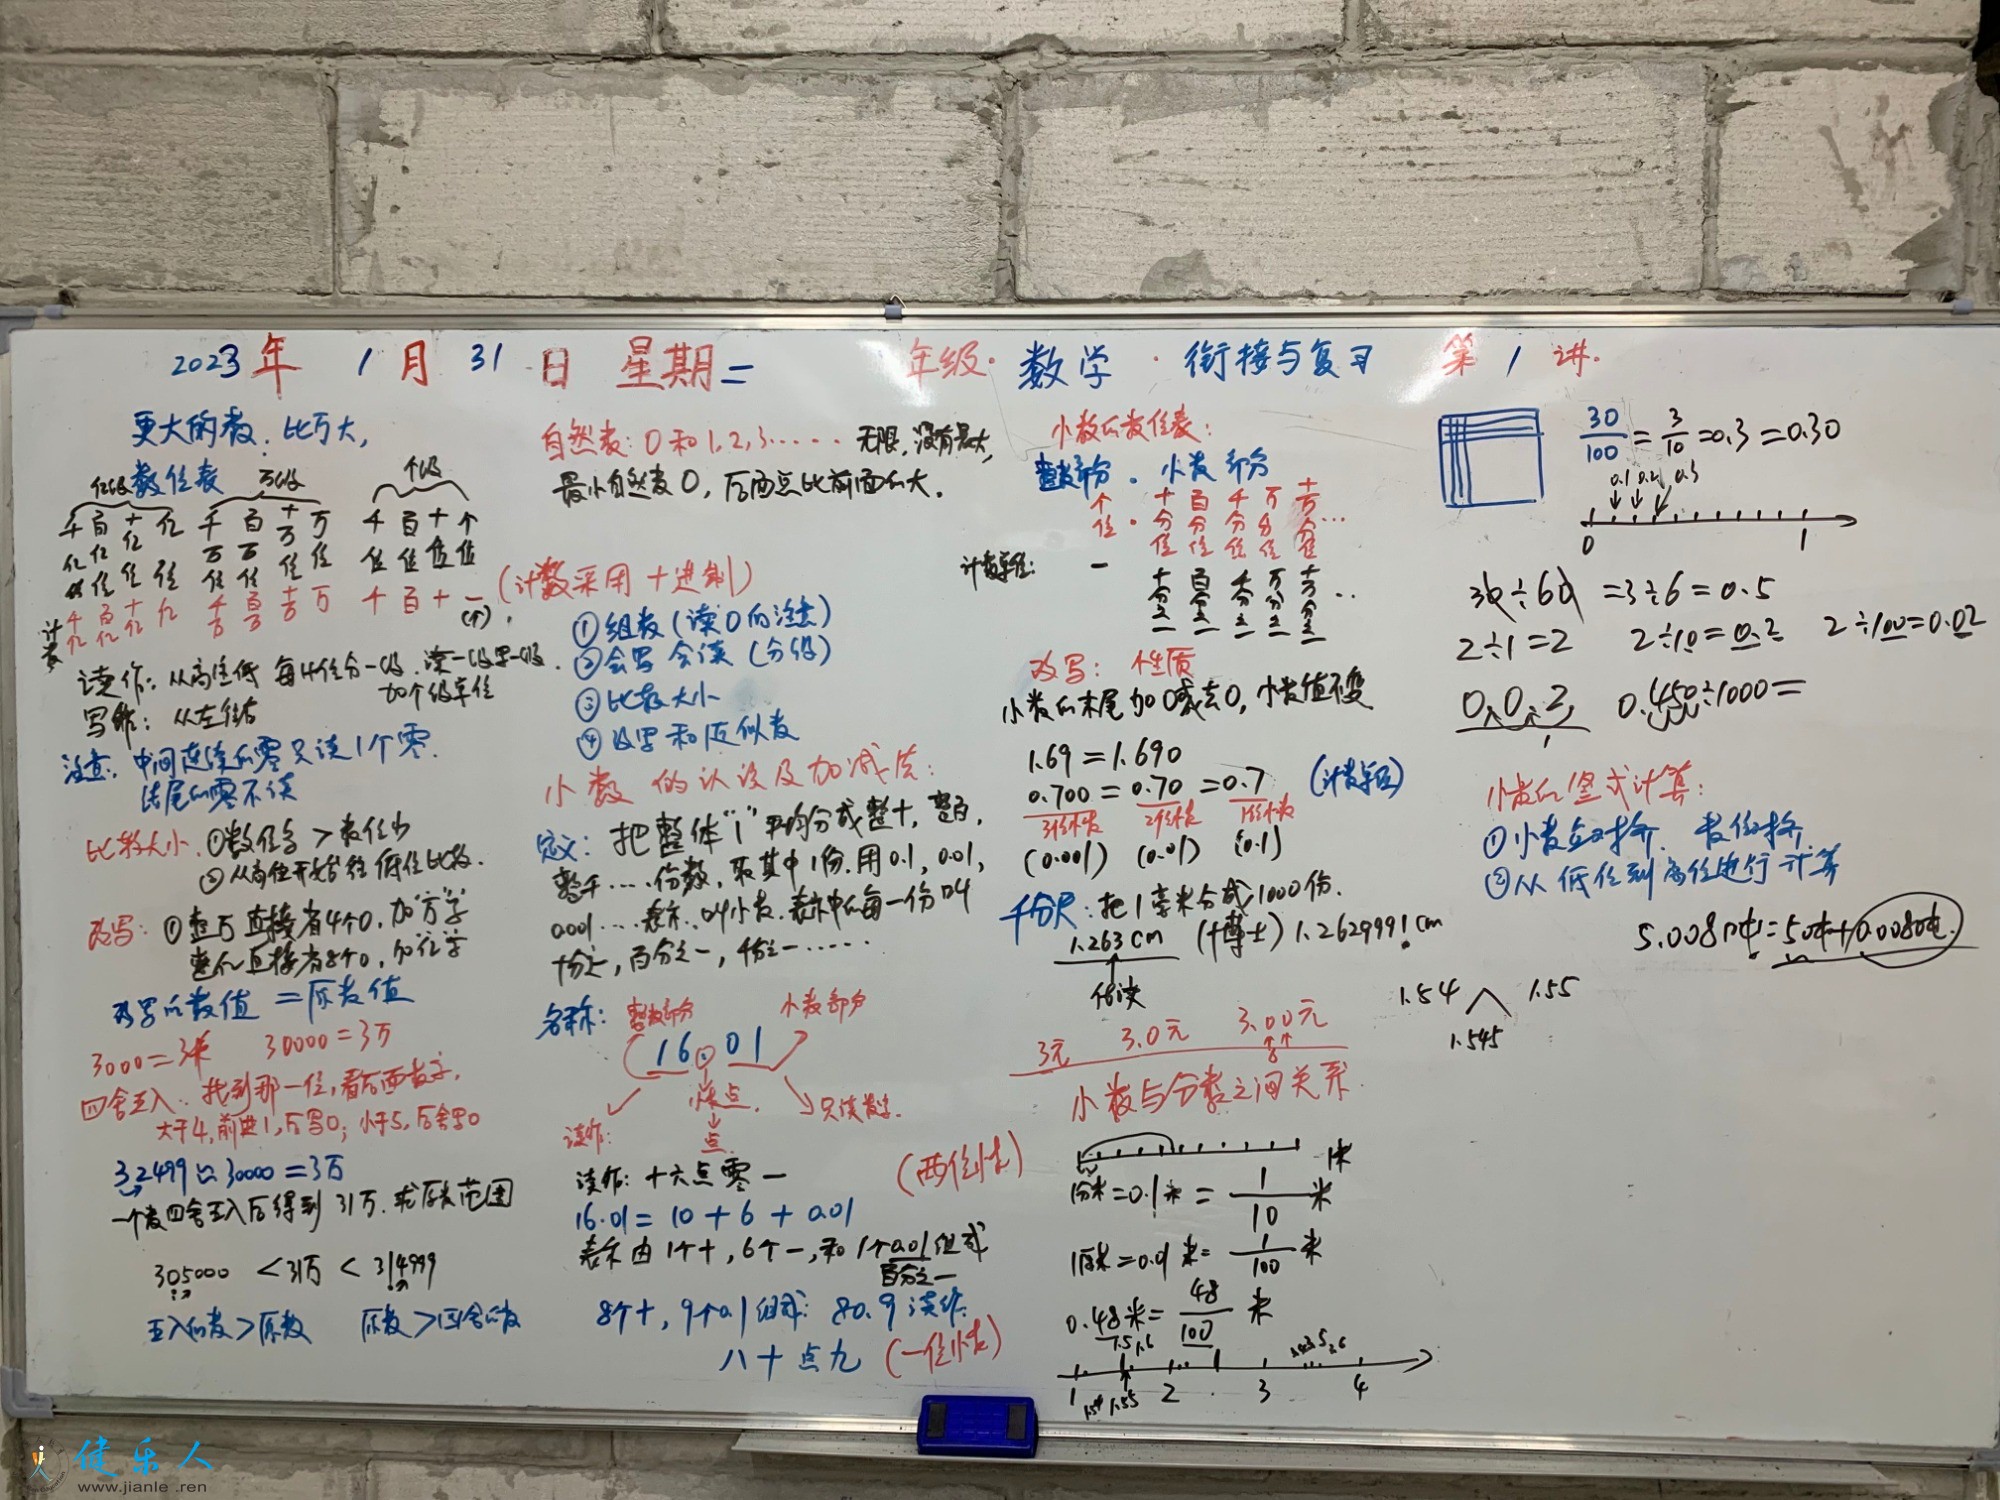 2023年 1月 31日 星期二 年级·数学·衔接与复习 第1讲.
更大的数. 比万大,
数位表
亿级 万级 个级
千百十亿 千百十万 千百十个
亿亿亿 万万万 位位位位
位位位位 位位位位
计数
千百十亿 千百十万 千百十一
亿亿亿 万万万 (个).
读作: 从高往低 每4位分一级. 读一级写一级.
加个级单位
写作: 从左往右
注意. 中间连续的零只读1个零.
结尾的零不读
比较大小. ①数位多 > 数位少
②从高位开始往低位比较.
改写: ①整万直接省4个0, 加"万"字
整亿直接省8个0, 加"亿"字
改写的数值 = 原数值
3000=3千 30000=3万
四舍五入. 找到那一位, 看后面数字,
大于4, 前进1, 后写0; 小于5, 后舍写0
32499≈30000=3万
一个数四舍五入后得到 31万. 求原数范围
305000 < 31万 < 314999
五入的数>原数 原数>四舍的数
自然数: 0 和 1, 2, 3...... 无限, 没有最大,
最小自然数0, 后面总比前面的大.
(计数采用十进制)
①组数(读0的注意)
②会写 会读 (分级)
③比较大小
④改写和近似数
小数 的认识及加减法:
定义: 把整体"1"平均分成整十, 整百,
整千....份数, 取其中1份. 用0.1, 0.01,
0.001....表示. 叫小数. 表示中的每一份叫
十分之一, 百分之一, 千分之一......
名称: 整数部分 小数部分
16.01
小数点. 只读数字.
读作: 点
读作: 十六点零一 (两位小数)
16.01 = 10 + 6 + 0.01
表示由1个十, 6个一, 和1个0.01组成
百分之一
8个十, 9个0.1组成: 80.9 读作:
八十点九 (一位小数)
小数的数位表:
整数部分 . 小数部分
个 . 十 百 千 万 十
位 分 分 分 分 万
位 位 位 位 分 ...
位
计数单位: 一 十 百 千 万 十
分 分 分 分 万 ..
之 之 之 之 分
一 一 一 一 之
一
改写: 性质
小数的末尾加0减去0, 小数值不变
1.69 = 1.690
0.700 = 0.70 = 0.7 (计数单位)
3位小数 2位小数 1位小数
(0.001) (0.01) (0.1)
千分尺: 把1毫米分成1000份.
1.263cm (博士) 1.2629991cm
估读
3元 3.0元 3.00元
小数与分数之间关系.
1米
1分米=0.1米= 1/10 米
1厘米=0.01米= 1/100 米
0.48米= 48/100 米
1.5 1.6
1 2 3 4
1.54 1.55
30/100 = 3/10 = 0.3 = 0.30
0.1 0.2 0.3
0 1
30÷60 =3÷6=0.5
2÷1=2 2÷10=0.2 2÷100=0.02
0.450÷1000=
小数的竖式计算:
①小数点对齐. 数位对齐
②从低位到高位进行计算
5.008吨=5吨+0.008吨.
1.54 1.55
1.545
健乐人
www.jianle.ren